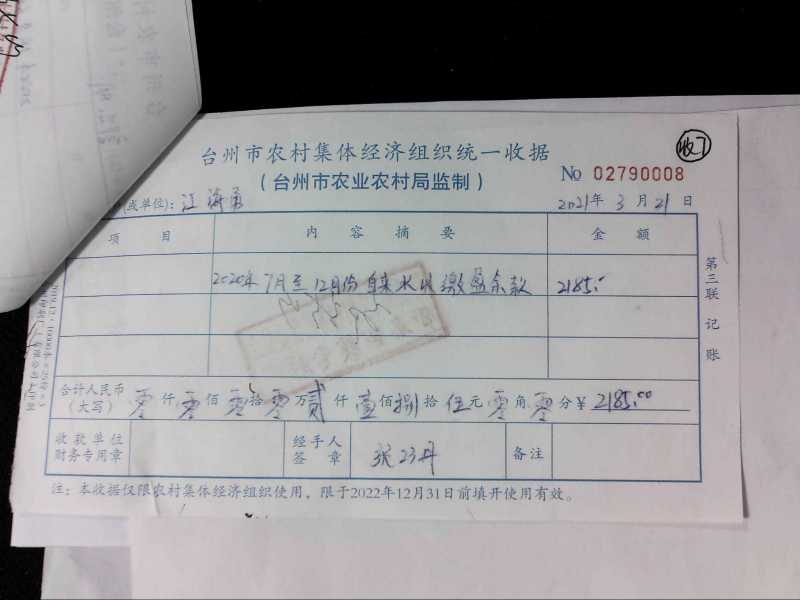 收7
台州市农村集体经济组织统一收据
(台州市农业农村局监制)
No 02790008
(或单位): 江海勇
2021年3月21日
项目 内容摘要 金额
2020年7月至12月份自来水收缴盈余款 2185.00
合计人民币(大写) 零仟零佰零拾零万贰仟壹佰捌拾伍元零角零分 ¥ 2185.00
收款单位财务专用章
经手人签章
备注
注:本收据仅限农村集体经济组织使用,限于2022年12月31日前填开使用有效。
第三联 记账